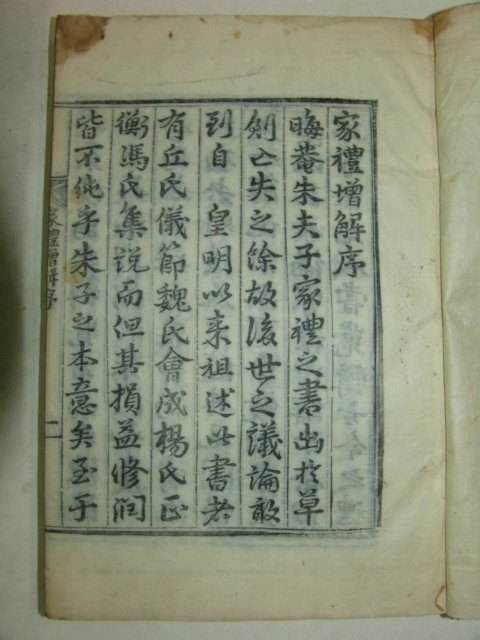 家禮增解序
晦菴朱夫子家禮之書出於草
創亡失之餘故後世之議論敢
到自　皇明以來祖述此書者
有丘氏儀節魏氏會成楊氏正
衡馮氏集說而但其損益修潤
皆不純乎朱子之本意矣至于
家禮增解序